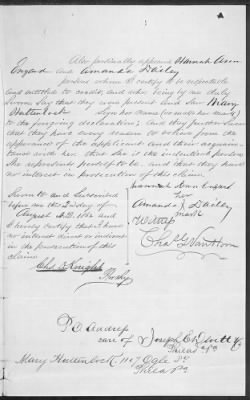 Also personally appeared Hannah Ann
England and Amanda Dailey
persons whom I certify to be respectable
and entitled to credit, and who being by me duly
sworn Say that they were present and Saw Mary
Huttenlock Sign her name (or make her mark)
to the foregoing declaration; and they further swear
that they have every reason to believe from the
appearance of the applicant and their acquain-
tance with her that she is the identical person
She represents herself to be and that they have
no interest in prosecution of this claim.
Hannah Ann England
her
Amanda X Dailey
mark
Witness
Chas G Van Horn
Sworn to and Subscribed
before me this 2d day of
August A.D. 1862 and
I hereby certify that I have
no interest direct or indirect
in the prosecution of this
claim
Chas D Knight
P.O. Address
care of Joseph E Devitt &Co
Philad Pa
Mary Huttenlock, 1107 Ogle St
Phila Pa